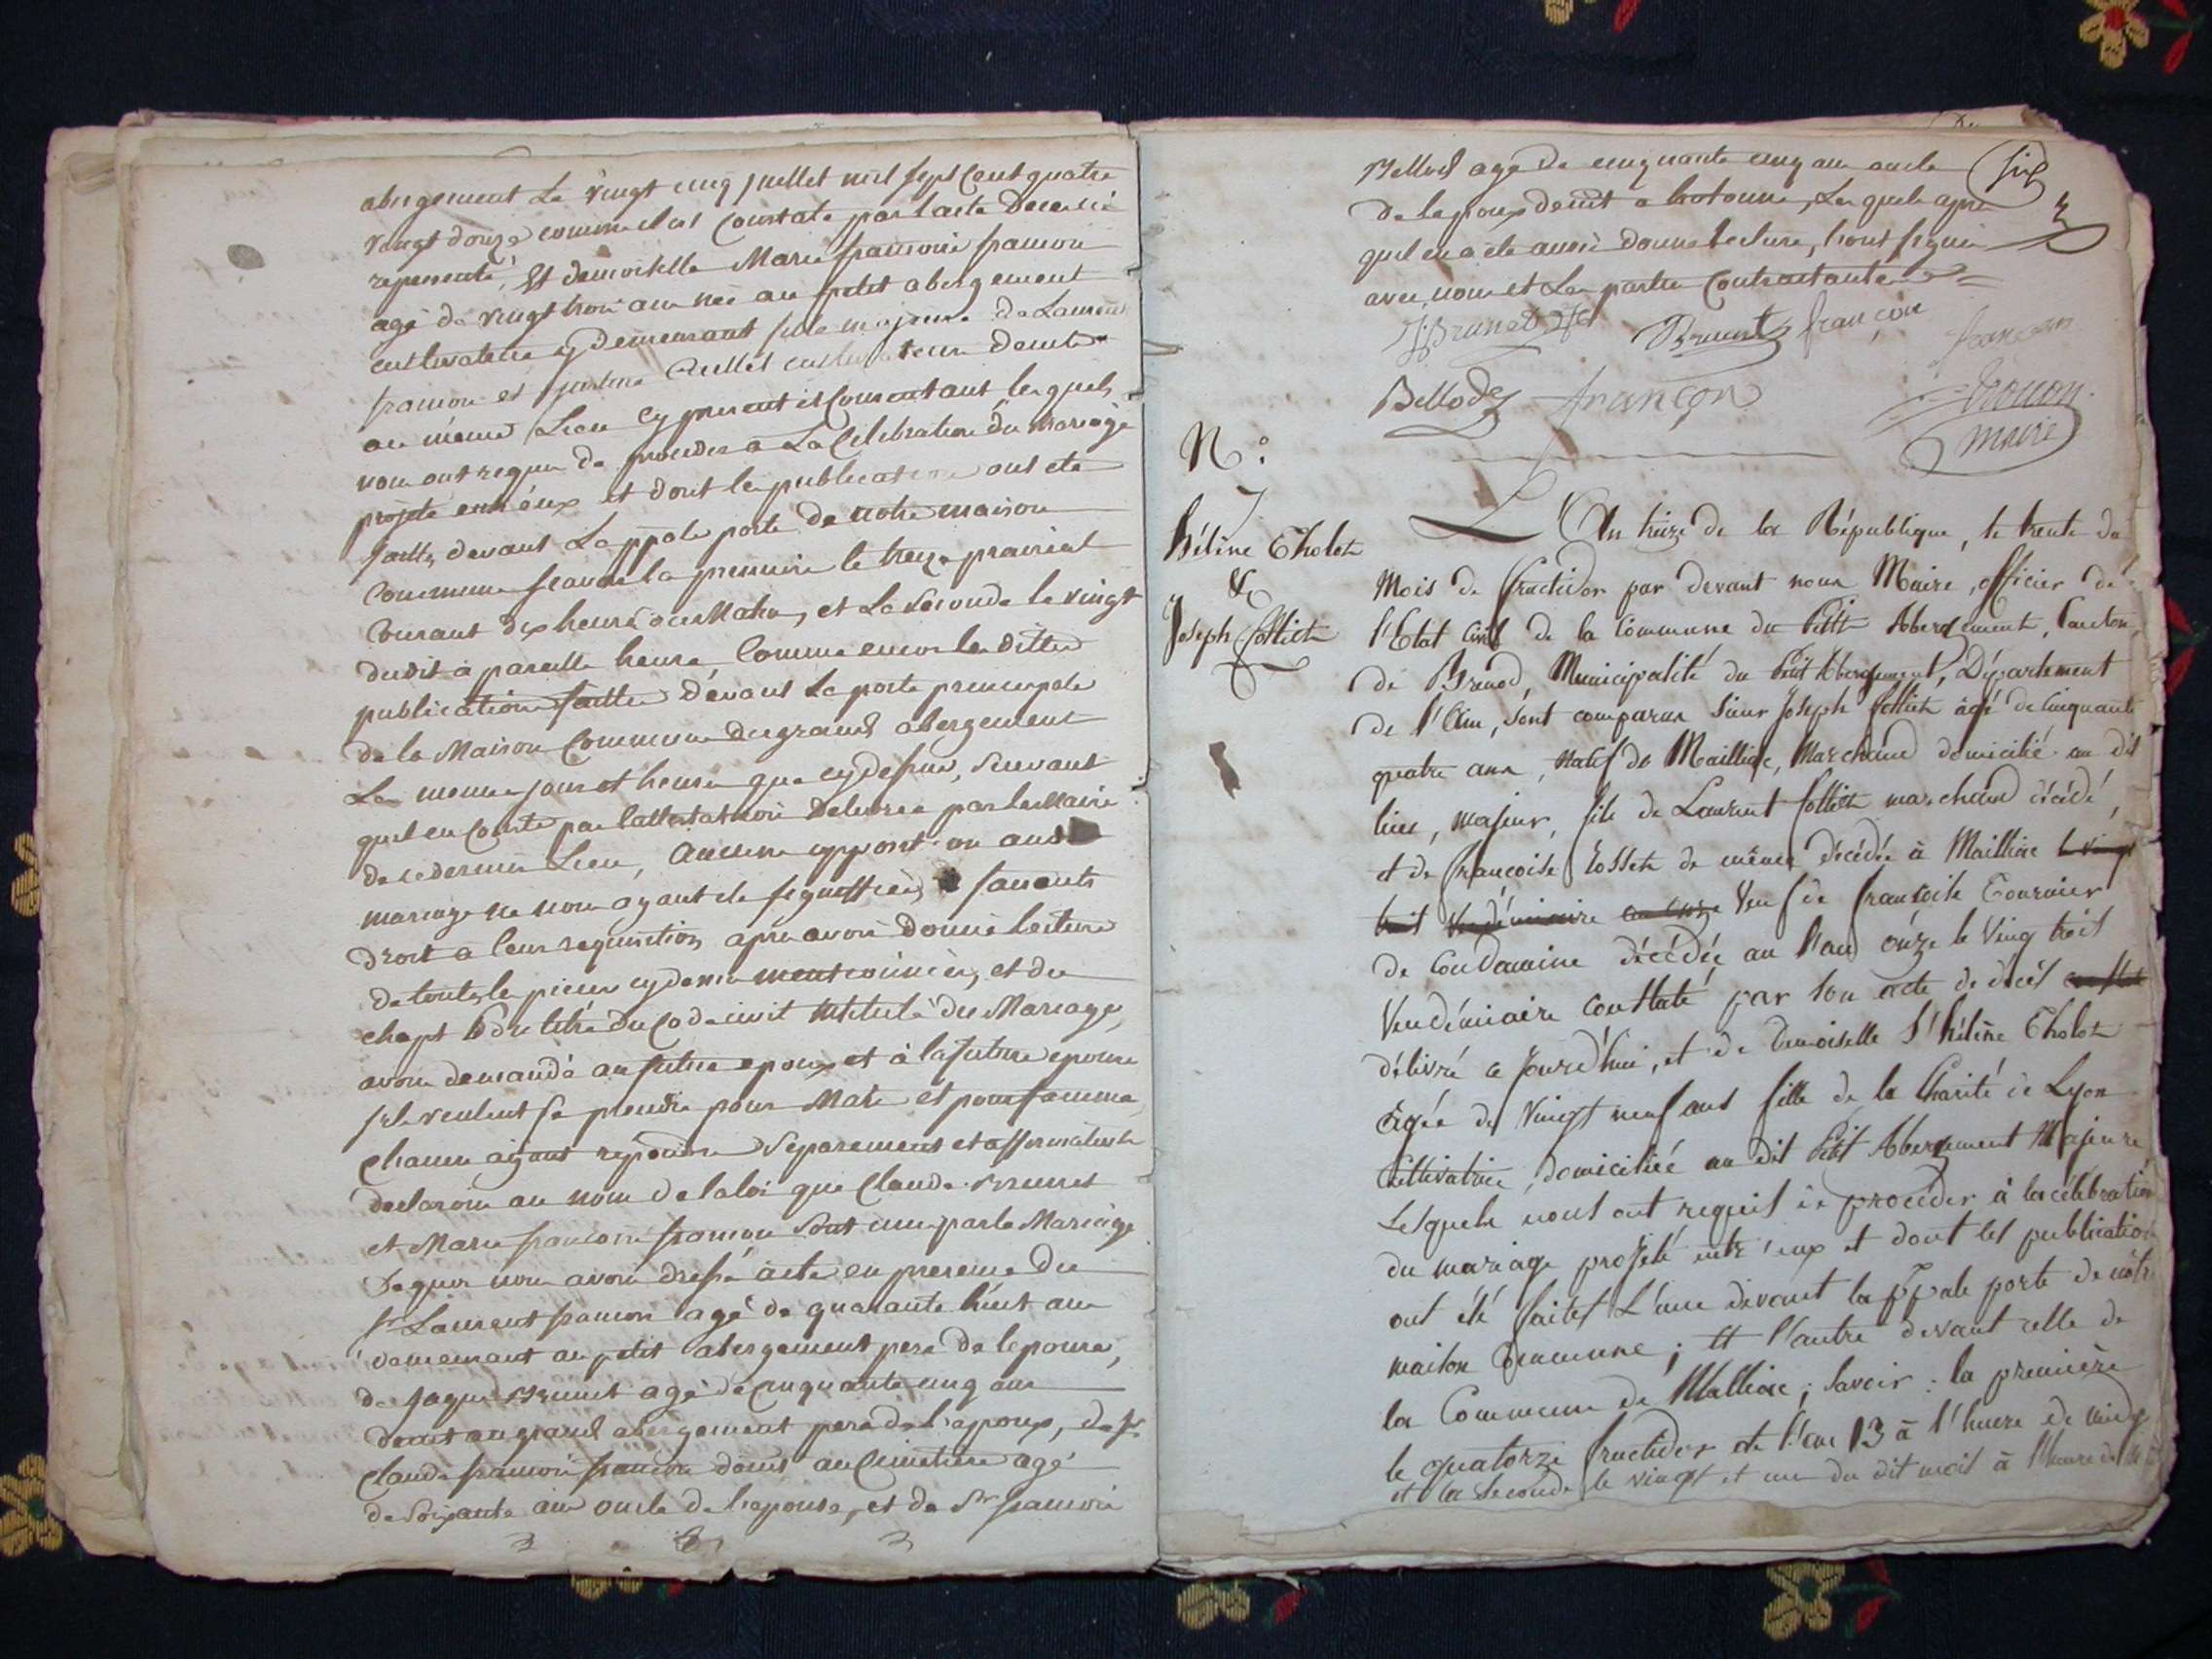 abergement Le vingt cinq juillet mil sept Cent quatre
vingt douze comme il est Constaté par l'acte De deces
representé, Et demoiselle Marie francoise francon
agé de vingt trois ans née au petit abergement
cultivatrice y demeurant fille majeure de Laurent
francon et Cultivateur demt
au meme Lieu cy present et Consentant les quels
nous ont requis de proceder a La Celebration du Mariage
projeté entr'eux et dont les publications ont eté
faittes devant La ppale porte de notre maison
Commune scavoir la premiere le treize prairial
Courant dix heures du Matin, et La Seconde le vingt
dudit à pareille heure, Comme encor les dittes
publications faittes devant la porte principale
de la Maison Commune du grand abergement
Les memes jours et heures que cy dessus, suivant
quil en Conste par l'attestation Delivrée par le Maire
de ce dernier Lieu, Aucune opposition audt
mariage ne nous ayant eté signiffiée, faisants
Droit a leur requisition, apres avoir donné lecture
de toutes les pieces cy dessus mentionnées, et du
chapt 6 du titre du Code civil intitulé du Mariage,
avons demandé au futur epoux et à la future epouse
s'ils veulent se prendre pour Mari et pour femme
Chacun ayant repondu Separement et affirmativemt
declarons au nom de la loi que Claude Brunet
et Marie francoise francon Sont unis par le Mariage
De quoi nous avons dressé acte en presence du
Sr Laurent francon agé de quarante huit ans
demeurant au petit abergement pere de lepouse,
de Jaque Brunet agé de Cinquante cinq ans
demt au grand abergement pere de l'epoux, de Sr
Claude francon demt au Cimetiere agé
de Soixante ans oncle de l'epouse, et de Sr francois
Bellod agé de cinquante cinq ans oncle
de lepoux demt a hotonne, Les quels apres
quil en a eté aussi donné lecture, l'ont signé
avec nous et Les parties Contractantes
six
Brunet
Brunet françoise
francon
Bellod
françon
maire
N.°
7
hélène Tholot
&
Joseph Colliet
L'An treize de la République, le trente du
Mois de fructidor par devant nous Maire, officier de
l'Etat Civil de la Commune du Petit Abergement, Canton
de Brenod, Municipalité du Petit Abergement, Département
de l'Ain, sont comparus Sieur Joseph Colliet âgé de Cinquante
quatre ans, Natif de Maillac, Marchand domicilié au dit
lieu, majeur, fils de Laurent Colliet marchand décédé,
et de françoise Rosset de même décédée à Maillac le vingt
huit Vendémiaire an onze Veuf de françoise Tournier
de Condamine décédée en l'an onze le Vingt trois
Vendémiaire Constaté par son acte de décès
délivré ce Jourd'hui, et de Demoiselle hélène Tholot
âgée de Vingt neuf ans fille de la Charité de Lyon
Cultivatrice, domiciliée au dit Petit Abergement Majeure
Lesquels nous ont requis de procéder à la célébration
du mariage projeté entr'eux et dont les publications
ont été faites L'une devant la ppale porte de nôtre
maison Commune; Et l'autre devant celle de
la Commune de Malliac; savoir: la première
le quatorze fructidor de l'an 13 à l'heure de midy
et la Seconde le vingt et un du dit mois à l'heure de